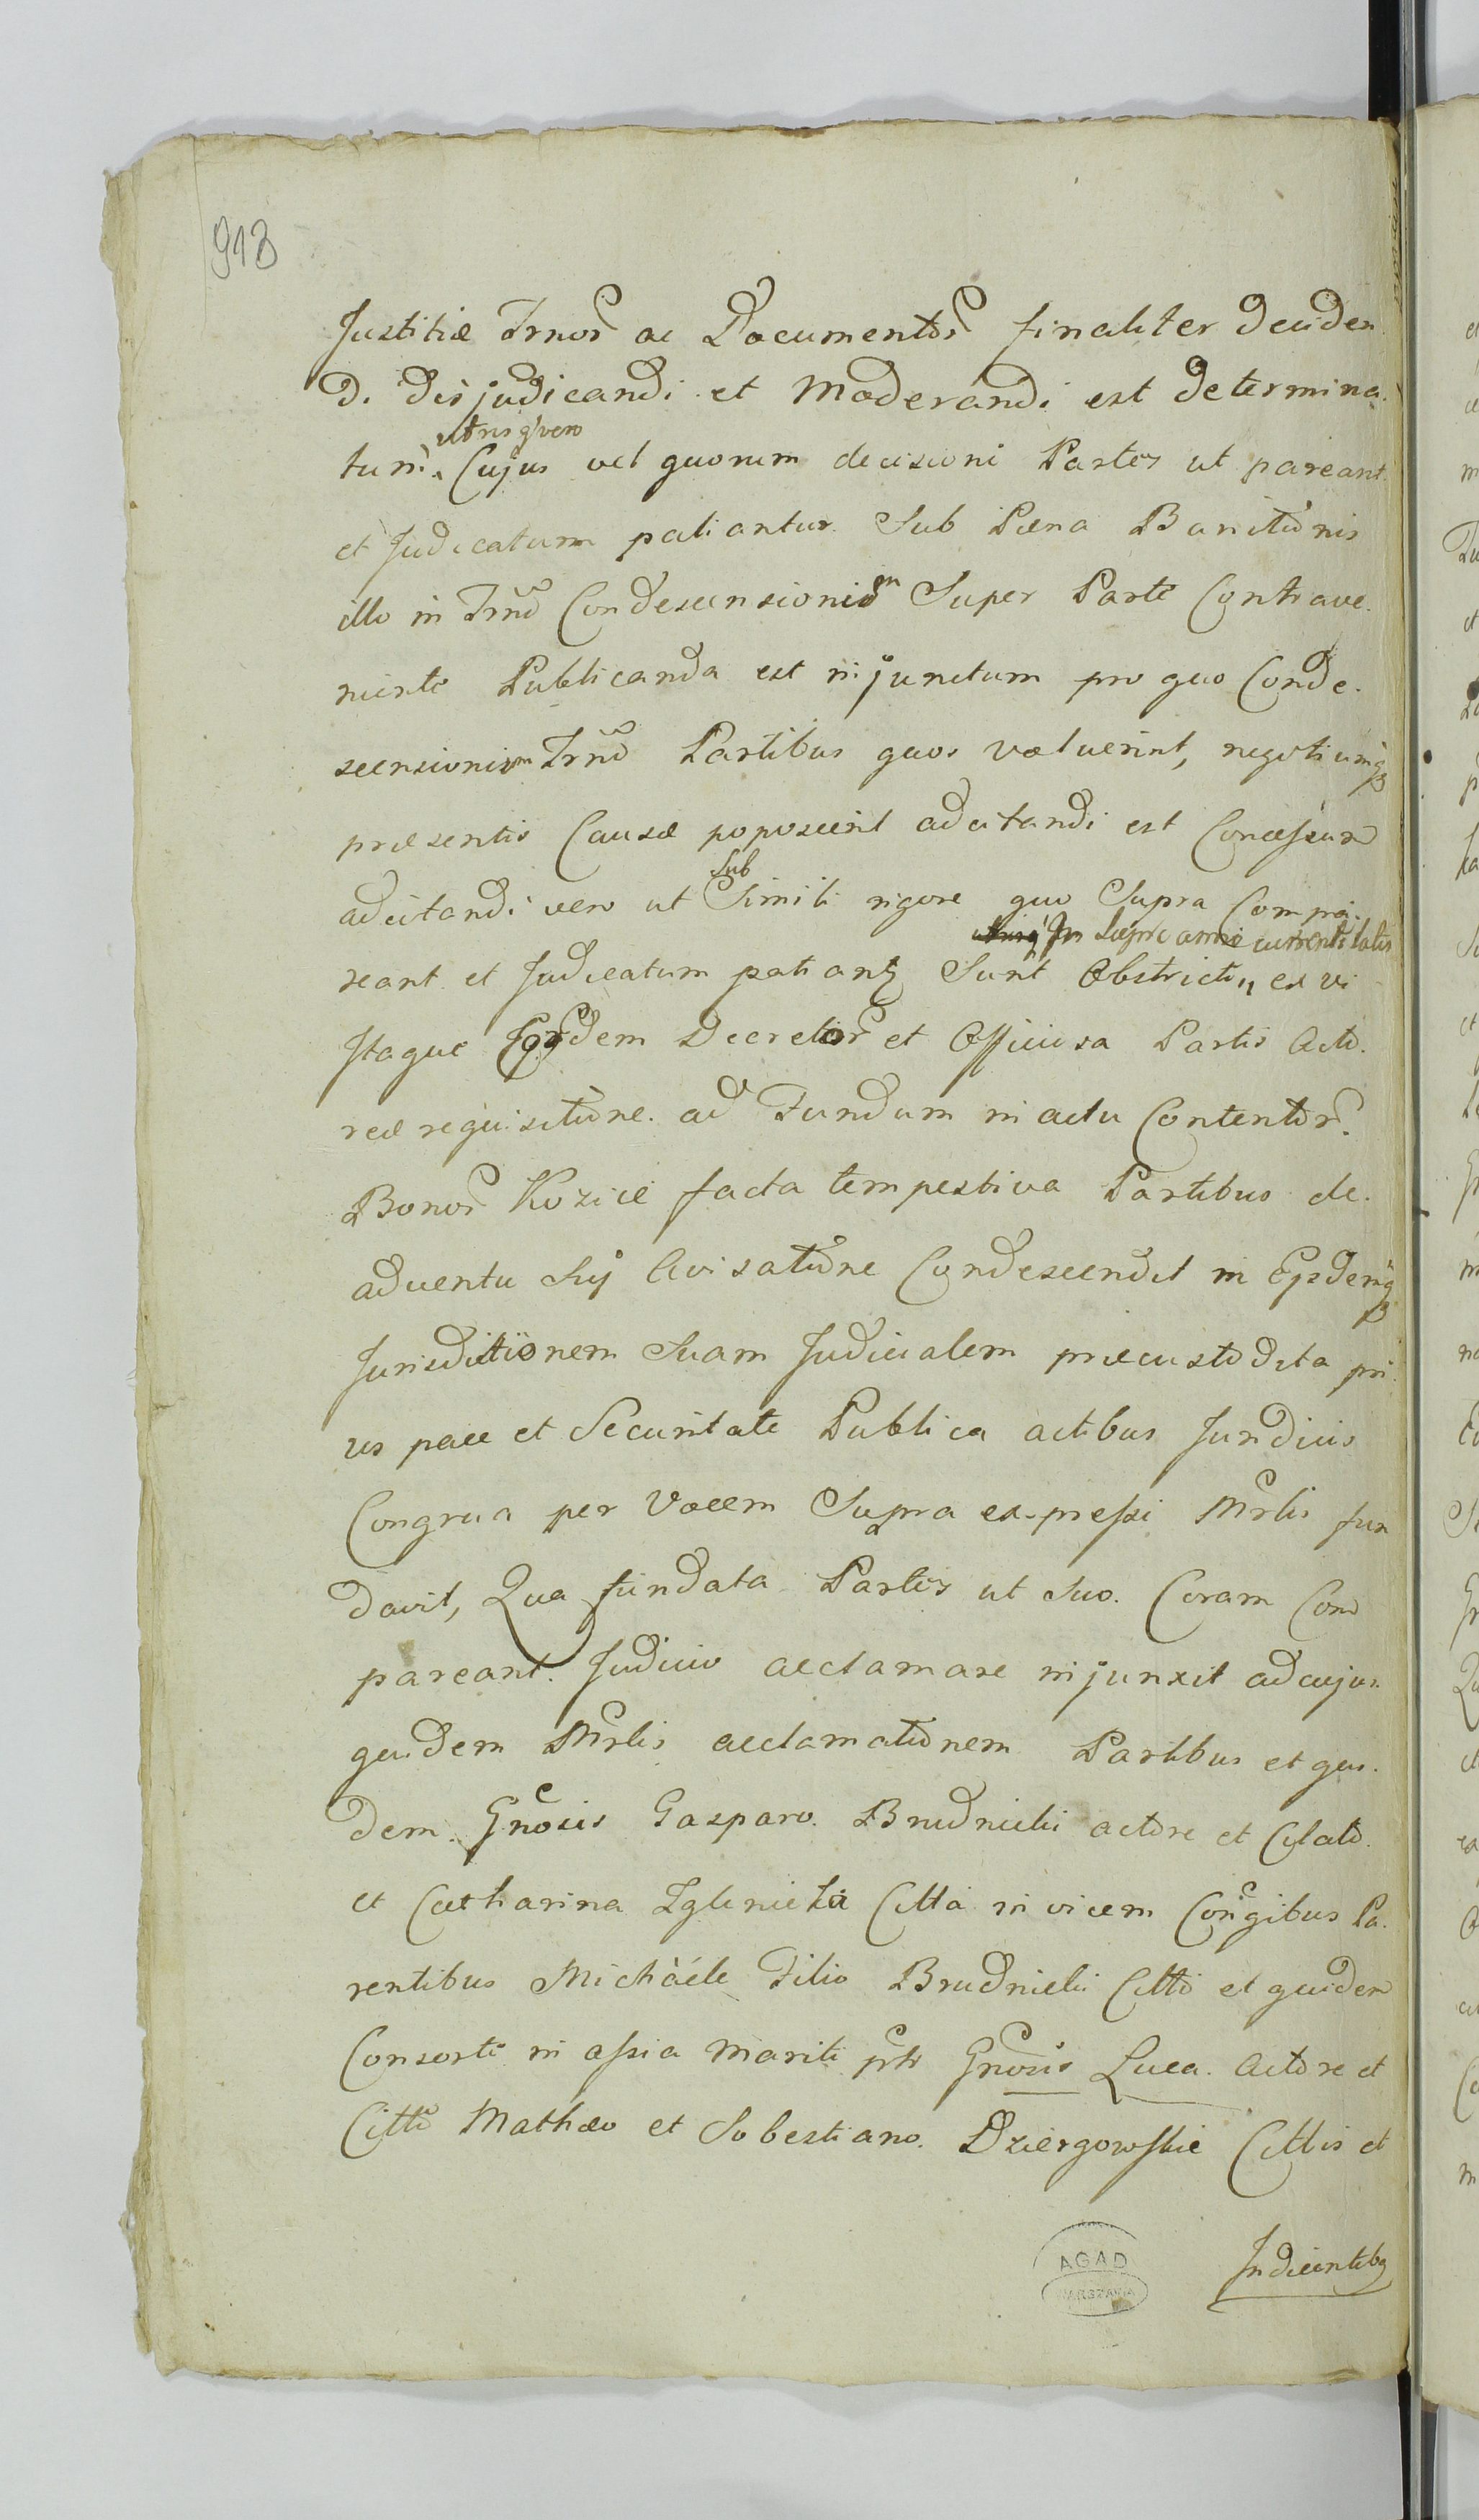 913
Justitiæ Trnor ac Documentor finaliter deciden
di disjudicandi et Moderandi est determina
utrisq vero
tum. Cujus vel quorum decisioni Partes ut pareant
et Judicatum patiantur Sub Pæna Banitionis
illo in Trno Condescensionis Super Parte Contrave
niente Publicanda est injunctum pro quo Conde
scensionis Trno Partibus quos voluerint, negotiumq
præsentis Causæ poposcerit adcitandi est Concessum
Sub
adcitandi vero ut Simili rigore quo Supra Compa
anni currentis latis
reant et Judicatum patiantq Sunt Obstricti ex vi
Itaque Eorumdem Decretor et Officiosa Partis Acto
reæ requisitione ad Fundum in actu Contentor
Bonor Kozice facta tempestiva Partibus de
adventu Sui Avisatione Condescendit in Ejsdemq
Jurisdictionem Suam Judicialem præcustodita pri
us pace et Securitate Publica actibus Juridicis
Congrua per Vocem Supra expressi Mrlis fun
davit, Qua fundata Partes ut Suo Coram Com
pareant Judicio acclamare injunxit ad cujus
quidem Mrlis acclamationem Partibus et qui
dem Gnosis Gasparo Brudnicki actore et Citato
et Catharina Zglenicka Citta invicem Congibus Pa
rentibus Michaele Filio Brudnicki Citto et quidem
Consorte in assia Mariti Gnosis Luca Actore et
Citto Mathæo et Sebestiano Dziergowskie Cittis et
AGAD
WARSZAWA
Indicentibq